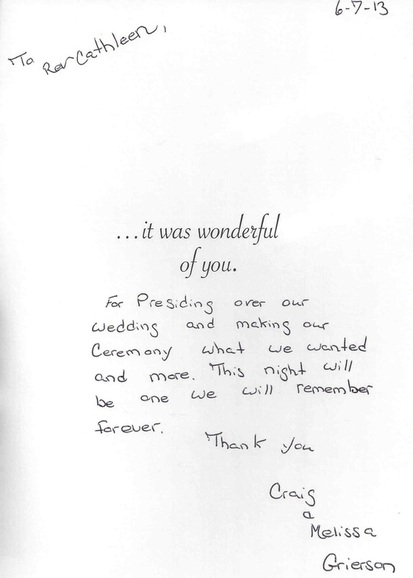 6-7-13
To Rev Cathleen,
...it was wonderful
of you.
For Presiding over our
wedding and making our
Ceremony what we wanted
and more. This night will
be one we will remember
forever.
Thank you
Craig
&
Melissa
Grierson